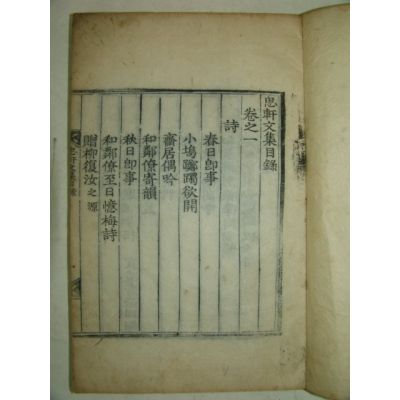 思軒文集目錄
卷之一
詩
春日卽事
小塢躑躅欲開
齋居偶吟
和鄰僚寄韻
秋日卽事
和鄰僚至日憶梅詩
贈柳復汝之源